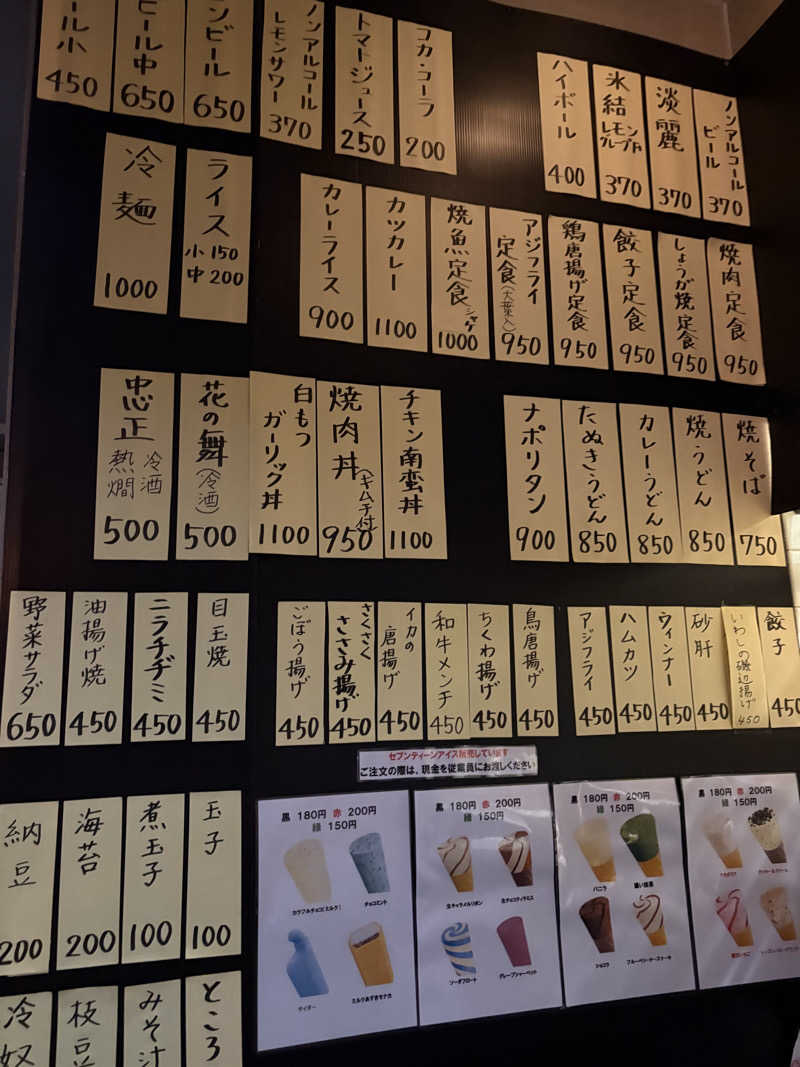 ール小
450
ビール中
650
ンビール
650
ノンアルコール
レモンサワー
370
トマトジュース
250
コカ・コーラ
200
ハイボール
400
氷結
レモン
370
淡麗
370
ノンアルコール
ビール
370
冷麺
1000
ライス
小150
中200
カレーライス
900
カツカレー
1100
焼魚定食
シャケ
1000
アジフライ
定食(大葉入)
950
鶏唐揚げ定食
950
餃子定食
950
しょうが焼定食
950
焼肉定食
950
忠正
冷酒
熱燗
500
花の舞
(冷酒)
500
白もつ
ガーリック丼
1100
焼肉丼
(キムチ付)
950
チキン南蛮丼
1100
ナポリタン
900
たぬきうどん
850
カレーうどん
850
焼うどん
850
焼そば
750
野菜サラダ
650
油揚げ焼
450
ニラチヂミ
450
目玉焼
450
ごぼう揚げ
450
さくさく
ささみ揚げ
450
イカの
唐揚げ
450
和牛メンチ
450
ちくわ揚げ
450
鳥唐揚げ
450
アジフライ
450
ハムカツ
450
ウィンナー
450
砂肝
450
いわしの磯辺揚げ
450
餃子
450
セブンティーンアイス販売しています
ご注文の際は、現金を従業員にお渡しください
納豆
200
海苔
200
煮玉子
100
玉子
100
黒 180円 赤 200円
緑 150円
カラフルチョコ(ミルク)
チョコミント
ソイダー
ミルクあずきモナカ
黒 180円 赤 200円
緑 150円
生キャラメルリボン
生チョコティラミス
ソーダフロート
グレープシャーベット
黒 180円 赤 200円
緑 150円
バニラ
濃い抹茶
ショコラ
ブルーベリーチーズケーキ
黒 180円 赤 200円
緑 150円
冷奴
枝豆
みそ汁
ところ